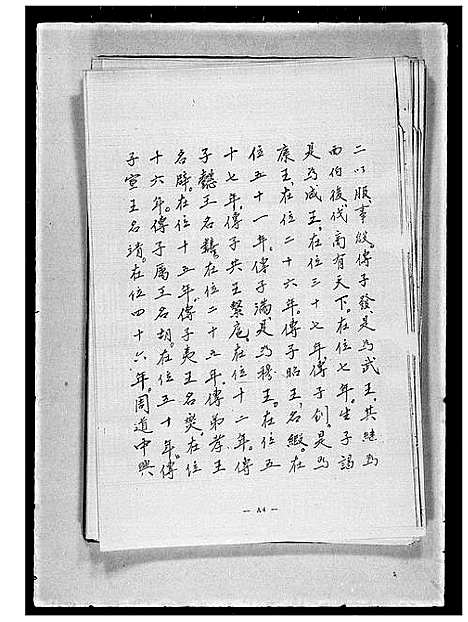 二以服事殷。傳子發、是為武王、其繼為
西伯後伐商有天下。在位七年。生子誦
是為成王、在位三十七年、傳子釗、是為
康王、在位二十六年。傳子昭王、名瑕。在
位五十一年。傳子滿、是為穆王。在位五
十七年、傳子共王繄扈、在位十二年。傳
子懿王名囏。在位二十五年。傳弟孝王
名辟。在位十五年、傳子夷王名燮。在位
十六年。傳子厲王名胡。在位五十年。傳
子宣王名靖。在位四十六年。周道中興
— A4 —